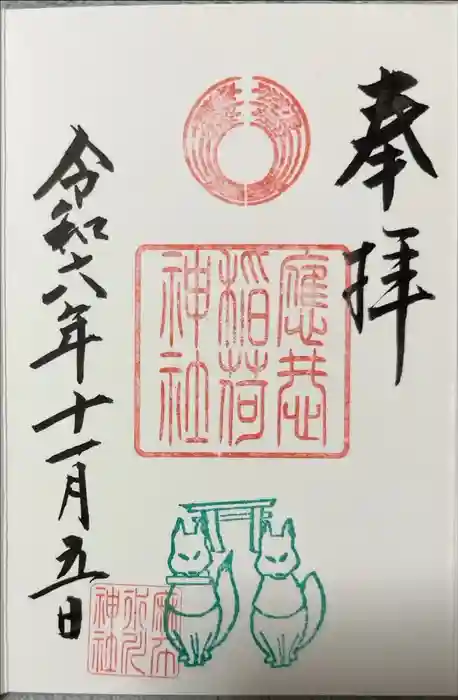 奉拝
應恭
稲荷
神社
令和六年十一月五日
神社